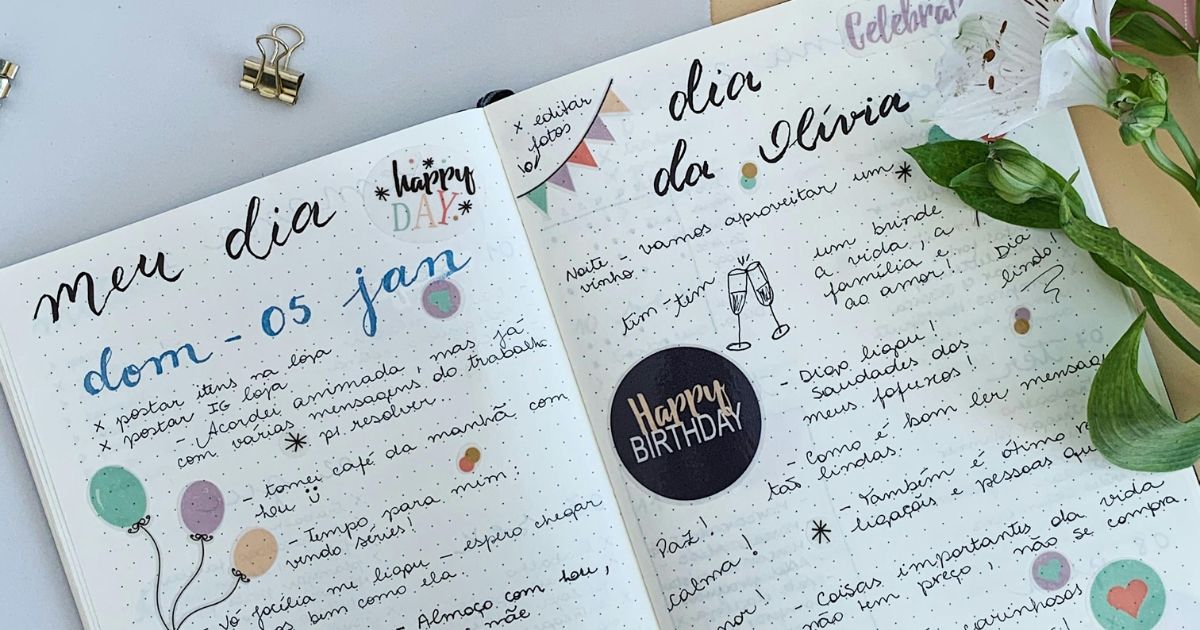 meu dia
happy
DAY.
dom - 05 jan
x postar itens na loja
x postar IG loja
- Acordei animada, mas já
com várias mensagens do trabalho
p/ resolver.
- tomei café da manhã com
heu
- Tempo para mim:
vendo séries!
- Vó Jacília me ligou - espero chegar
bem como ela.
- Almoço com heu,
mãe
x editar
fotos
dia
da Olívia
Celebra
Noite - vamos aproveitar um
vinho.
tim-tim
um brinde
a vida, a
família e
ao amor!
Dia
lindo!
Happy
BIRTHDAY
- Digo ligou!
Saudades dos
meus fofuxos!
- Como é bom ler mensagens
tão lindas.
- Também é ótimo
ligações e pessoas que
Paz!
calma!
- Coisas importantes da vida
não tem preço, não se compra.
carinhosos